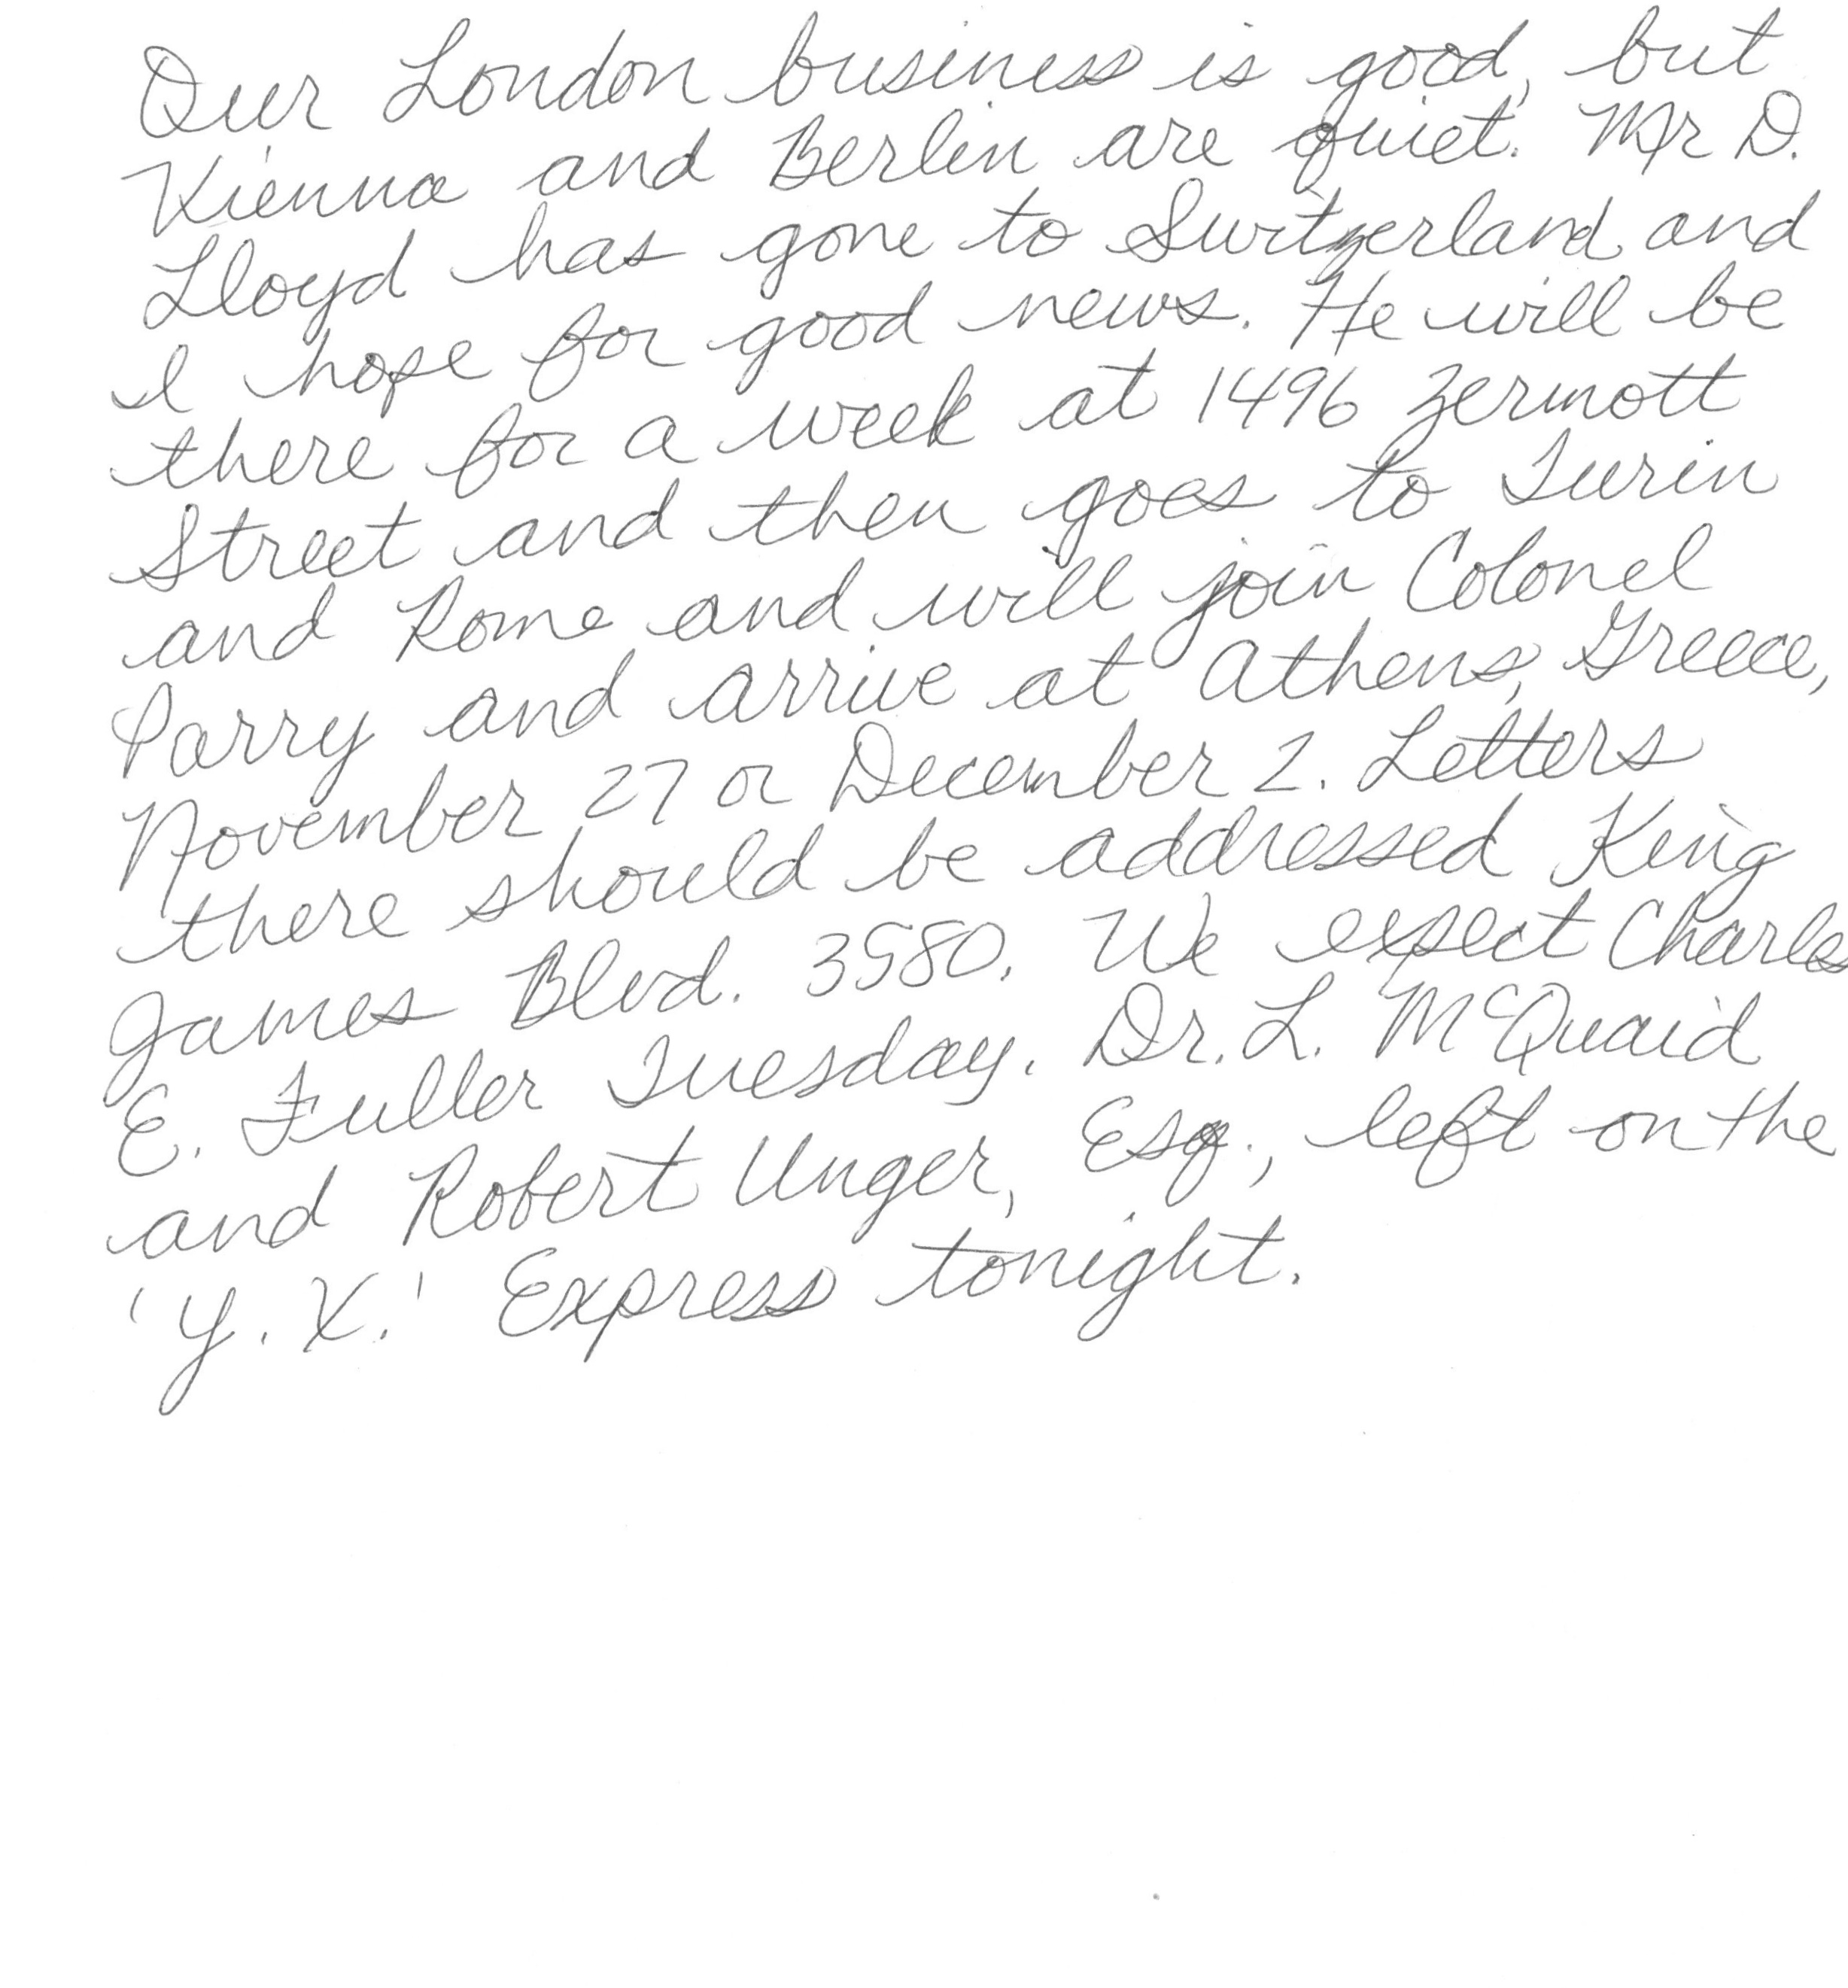 Our London business is good, but
Vienna and Berlin are quiet. Mr D.
Lloyd has gone to Switzerland and
I hope for good news. He will be
there for a week at 1496 Zermott
Street and then goes to Turin
and Rome and will join Colonel
Parry and arrive at Athens, Greece,
November 27 or December 2. Letters
there should be addressed King
James Blvd. 3580. We expect Charles
E. Fuller Tuesday. Dr. L. McQuaid
and Robert Unger, Esq., left on the
'Y. X.' Express tonight.